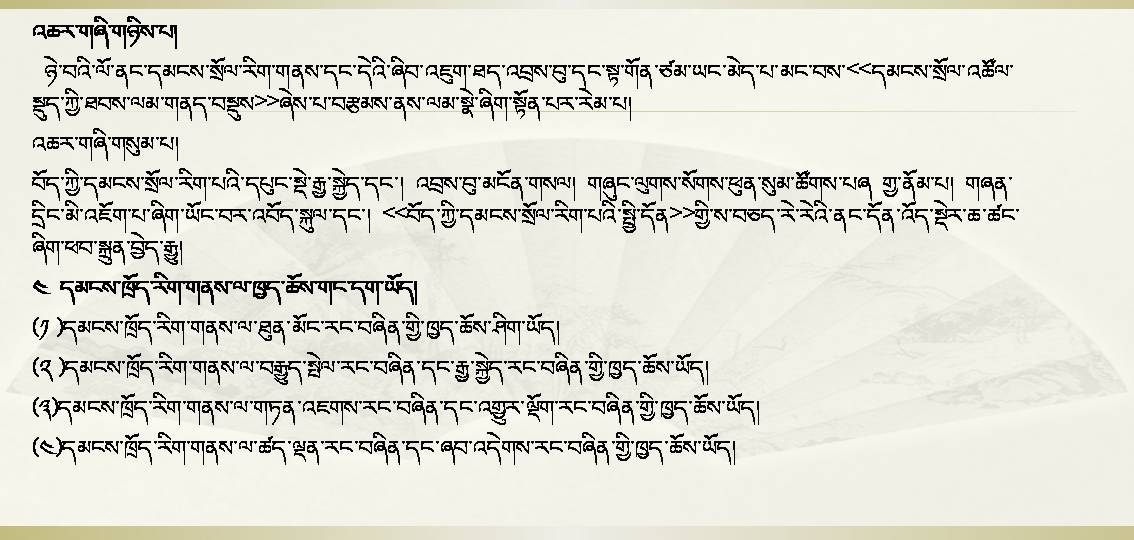 འཆར་གཞི་གཉིས་པ།
ཉེ་བའི་ལོ་ནང་དམངས་སྲོལ་རིག་གནས་དང་དེའི་ཞིབ་འཇུག་ཐད་འབྲས་བུ་དང་སྟ་གོན་ཙམ་ཡང་མེད་པ་མང་བས་<<དམངས་སྲོལ་འཚོལ་
སྡུད་ཀྱི་ཐབས་ལམ་གནད་བསྡུས>>ཞེས་པ་བརྩམས་ནས་ལམ་སྣེ་ཞིག་སྟོན་པར་རེམ་པ།
འཆར་གཞི་གསུམ་པ།
བོད་ཀྱི་དམངས་སྲོལ་རིག་པའི་དཔུང་སྡེ་རྒྱ་སྐྱེད་དང་། འབྲས་བུ་མངོན་གསལ། གཞུང་ལུགས་སོགས་ཕུན་སུམ་ཚོགས་པཞ གྱ་ནོམ་པ། གཞན་
དྲིང་མི་འཇོག་པ་ཞིག་ཡོང་བར་འབོད་སྐུལ་དང་། <<བོད་ཀྱི་དམངས་སྲོལ་རིག་པའི་སྤྱི་དོན>>གྱི་ས་བཅད་རེ་རེའི་ནང་དོན་འོད་སྡེར་ཆ་ཚང་
ཞིག་ཕབ་སྐྲུན་བྱེད་རྒྱུ།
༤ དམངས་ཁྲོད་རིག་གནས་ལ་ཁྱད་ཆོས་གང་དག་ཡོད།
(༡ )དམངས་ཁྲོད་རིག་གནས་ལ་ཐུན་མོང་རང་བཞིན་གྱི་ཁྱད་ཆོས་ཤིག་ཡོད།
(༢ )དམངས་ཁྲོད་རིག་གནས་ལ་བརྒྱུད་སྤེལ་རང་བཞིན་དང་རྒྱ་སྐྱེད་རང་བཞིན་གྱི་ཁྱད་ཆོས་ཡོད།
(༣)དམངས་ཁྲོད་རིག་གནས་ལ་གཏན་འཇགས་རང་བཞིན་དང་འགྱུར་ལྡོག་རང་བཞིན་གྱི་ཁྱད་ཆོས་ཡོད།
(༤)དམངས་ཁྲོད་རིག་གནས་ལ་ཚད་ལྡན་རང་བཞིན་དང་ཞབ་འདེགས་རང་བཞིན་གྱི་ཁྱད་ཆོས་ཡོད།